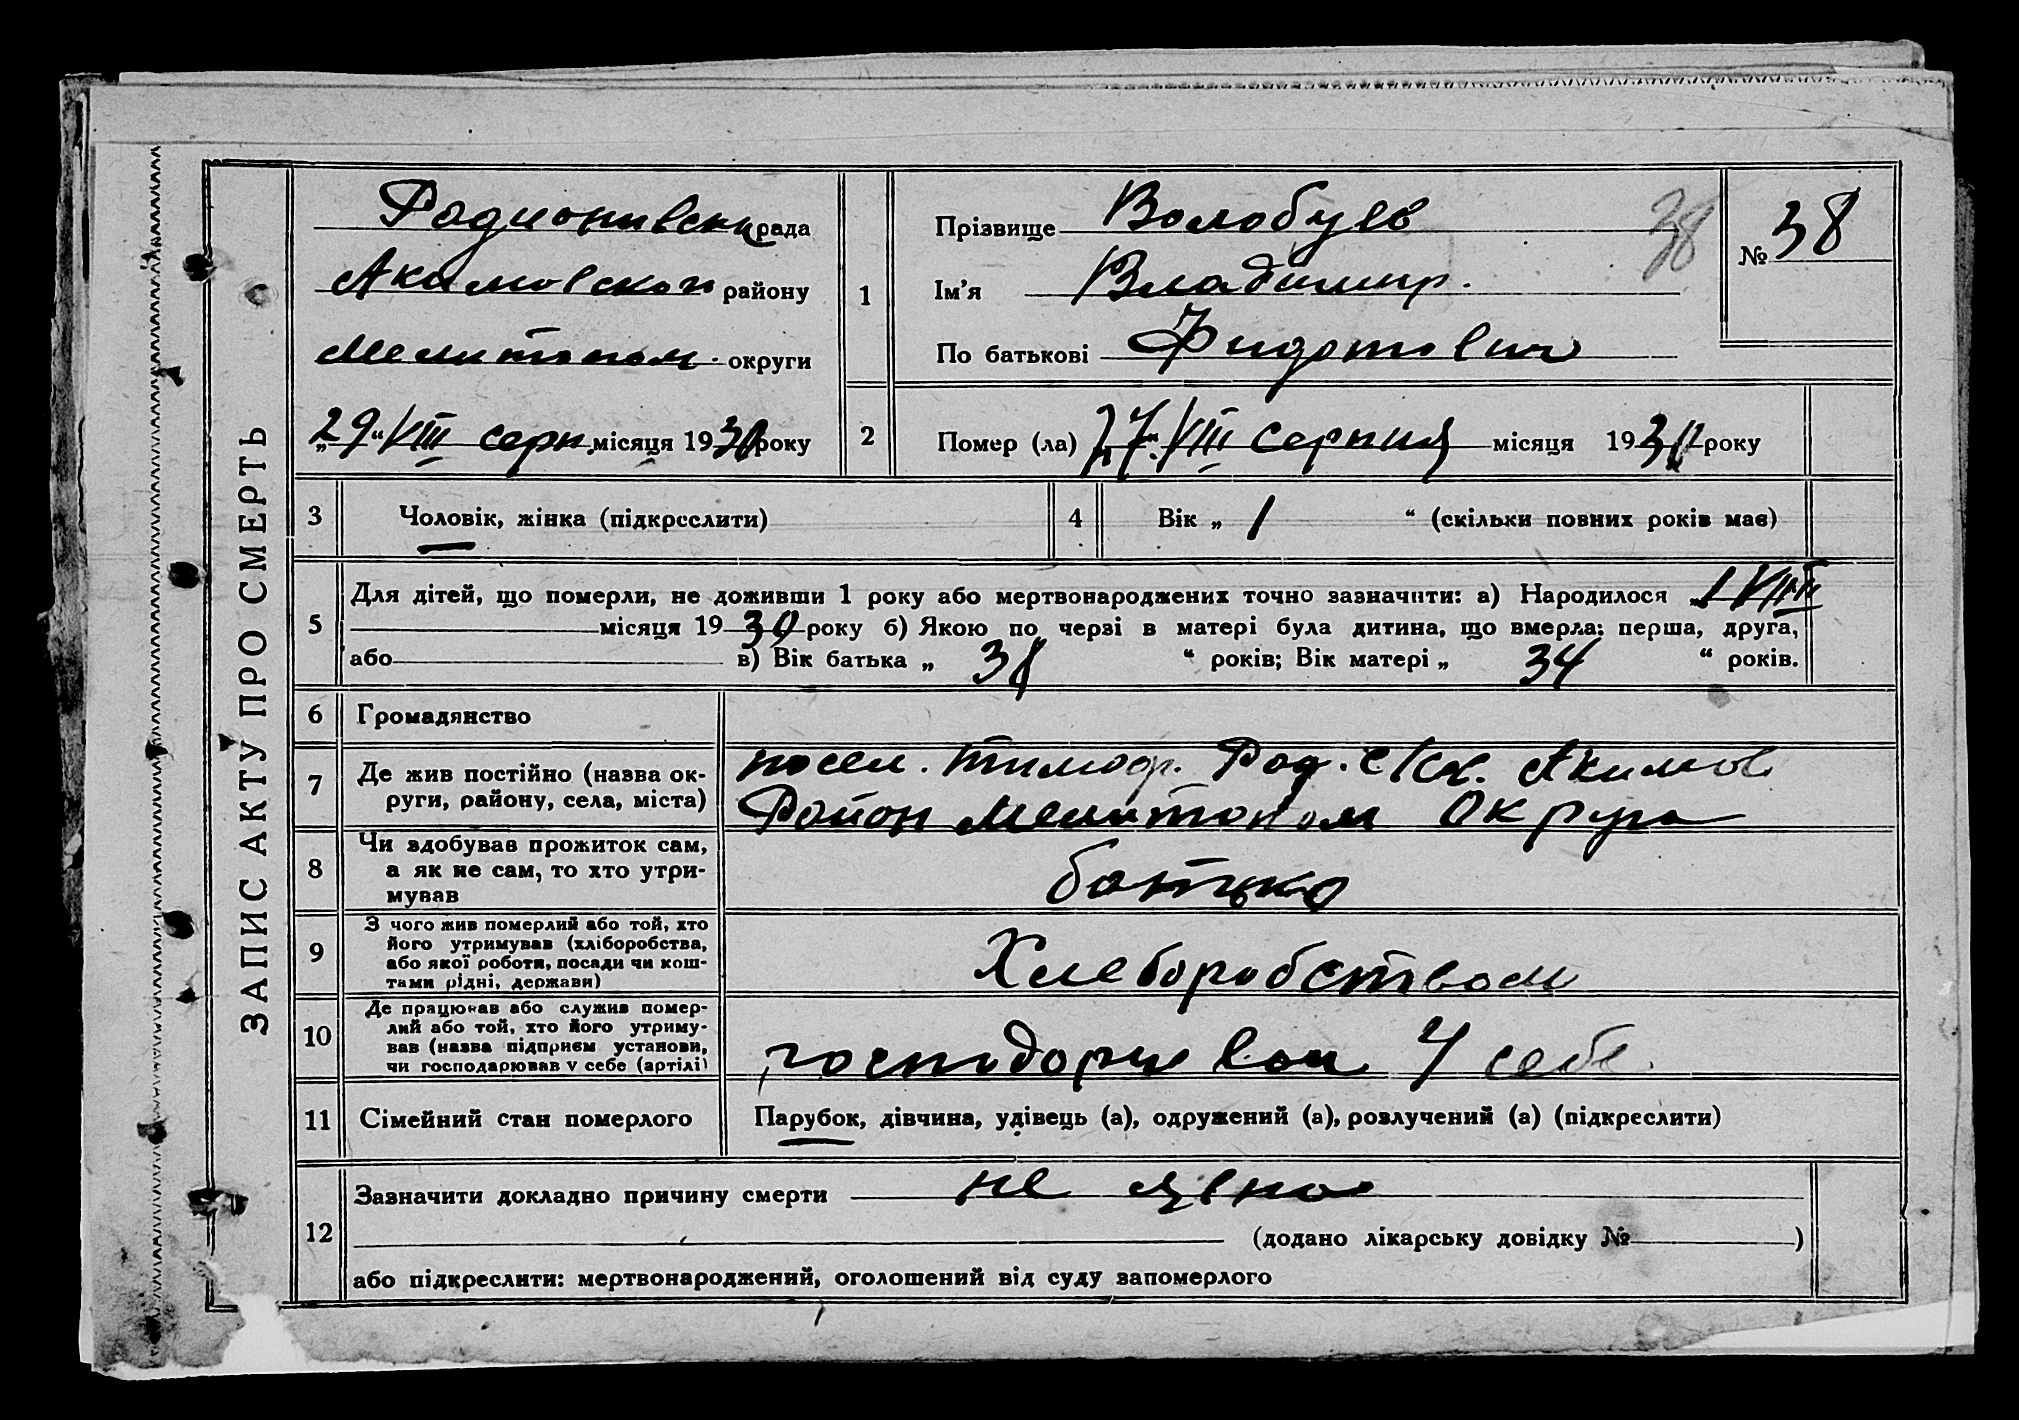 ЗАПИС АКТУ ПРО СМЕРТЬ
Радионивски рада
Акимовского району
Мелитопол. округи
„29“ VIII серп. місяця 1930 року
1
Прізвище Волобуев
Ім’я Владимир.
По батькові Фидотович
38
№ 38
2
Помер (ла) 27 VIII серпня місяця 1930 року
3 Чоловік, жінка (підкреслити)
4 Вік „ 1 “ (скільки повних років має)
5 Для дітей, що померли, не доживши 1 року або мертвонароджених точно зазначити: а) Народилося
місяця 1930 року б) Якою по черзі в матері була дитина, що вмерла: перша, друга,
або в) Вік батька „ 38 “ років; Вік матері „ 34 “ років.
6 Громадянство
7 Де жив постійно (назва ок-
руги, району, села, міста)
посел. Тимоф. Рад. с/к. Акимов
Район Мелитопол Округа
8 Чи здобував прожиток сам,
а як не сам, то хто утри-
мував
батько
9 З чого жив померлий або той, хто
його утримував (хліборобства,
або якої роботи, посади чи кош-
тами рідні, держави)
Хлеборобством
10 Де працював або служив помер-
лий або той, хто його утриму-
вав (назва підприєм установи,
чи господарював у себе (артілі)
господорювал У себе.
11 Сімейний стан померлого
Парубок, дівчина, удівець (а), одружений (а), розлучений (а) (підкреслити)
12 Зазначити докладно причину смерти не ясно
(додано лікарську довідку № )
або підкреслити: мертвонароджений, оголошений від суду запомерлого